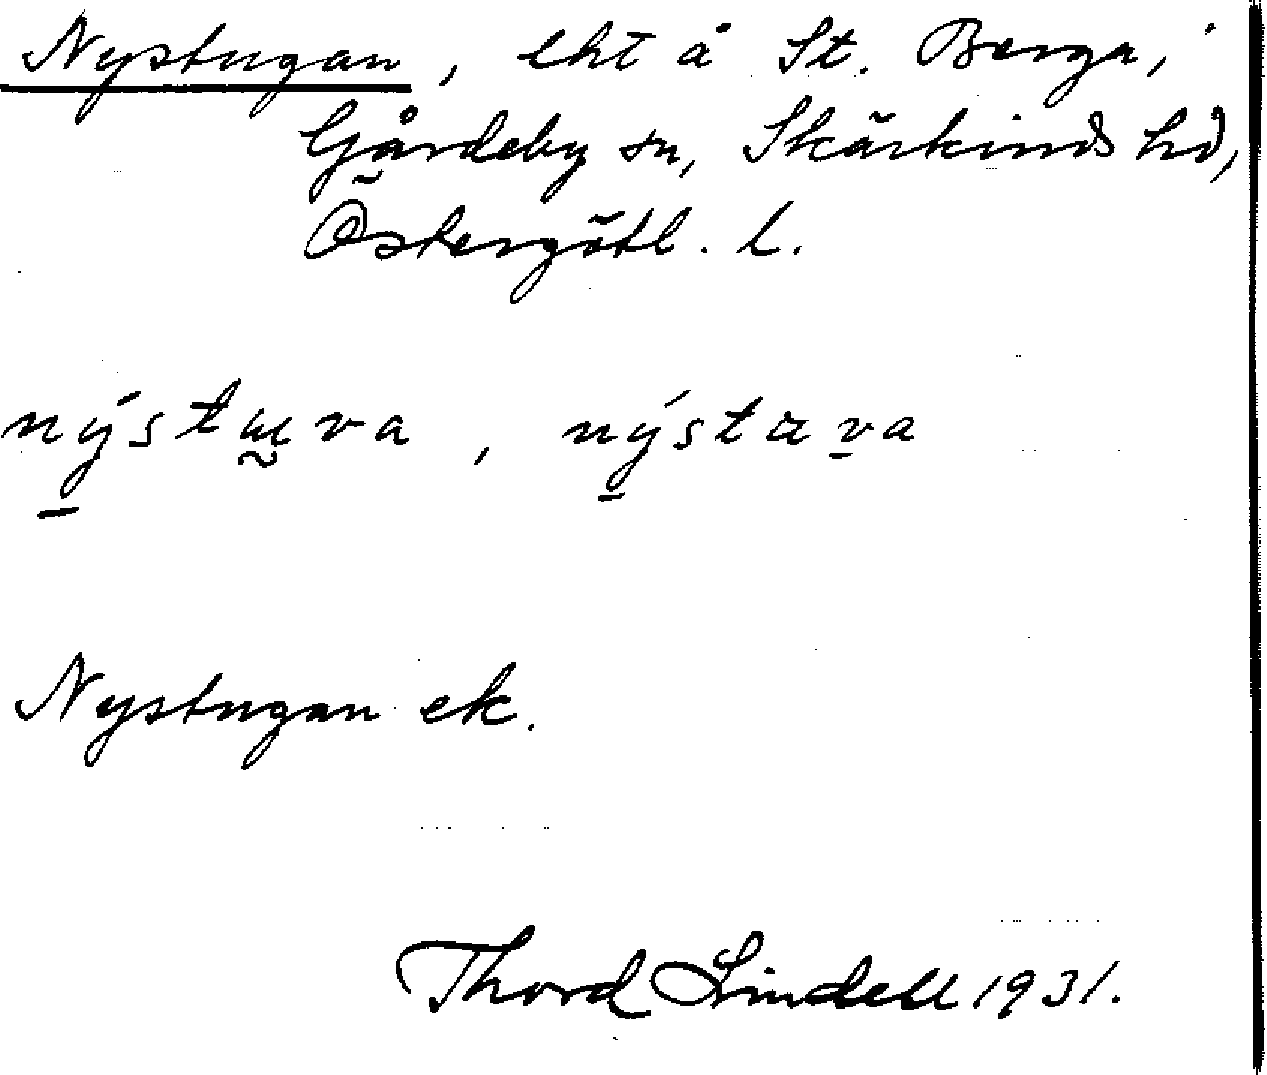 Nystugan, lht å St. Berga, i
Gårdeby sn, Skärkinds hd,
Östergötl. l.
nýstɯva, nýstava
Nystugan ek.
Thord Lindell 1931.